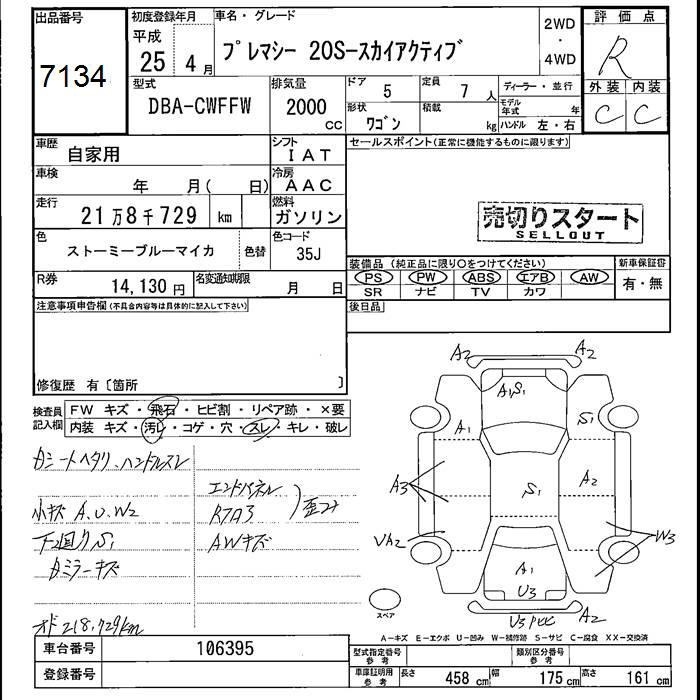 出品番号 初度登録年月 車名・グレード 2WD・4WD 評価点
7134 平成 25 4月 プレマシー 20S-スカイアクティブ R
型式 排気量 ドア 5 定員 7人 ディーラー・並行 外装 内装
DBA-CWFFW 2000 CC 形状 ワゴン 積載 kg モデル年式 年 ハンドル 左・右 C C
車歴 自家用 シフト IAT セールスポイント(正常に機能するものに限ります)
車検 年 月( 日) 冷房 AAC
走行 21万8千729 km 燃料 ガソリン 売切りスタート
SELLOUT
色 ストーミーブルーマイカ 色替 色コード 35J
装備品 (純正品に限り○をつけてください) 新車保証書
R券 14,130円 名変通知期限 月 日 PS PW ABS エアB AW 有・無
SR ナビ TV カワ
注意事項申告欄(不具合内容等は具体的に記入して下さい) 後日品
修復歴 有〔箇所 〕
検査員記入欄 FW キズ・飛石・ヒビ割・リペア跡・×要
内装 キズ・汚レ・コゲ・穴・スレ・キレ・破レ
A2 A2
A1,S1
A1 S1
カシートヘタリ、ハンドルスレ
A3 S1 A2
エンドパネル
小キズ A.U.W2 Rフロア 歪ミ
下回りS1 AWキズ
VA2 W3
カミラーキズ A1
U3
スペア
U3 A2
オド218,729km
A-キズ E-エクボ U-凹み W-補修跡 S-サビ C-腐食 XX-交換済
車台番号 106395 型式指定番号 参考 類別区分番号 参考
登録番号 車庫証明用 参考 長さ 458cm 幅 175cm 高さ 161cm